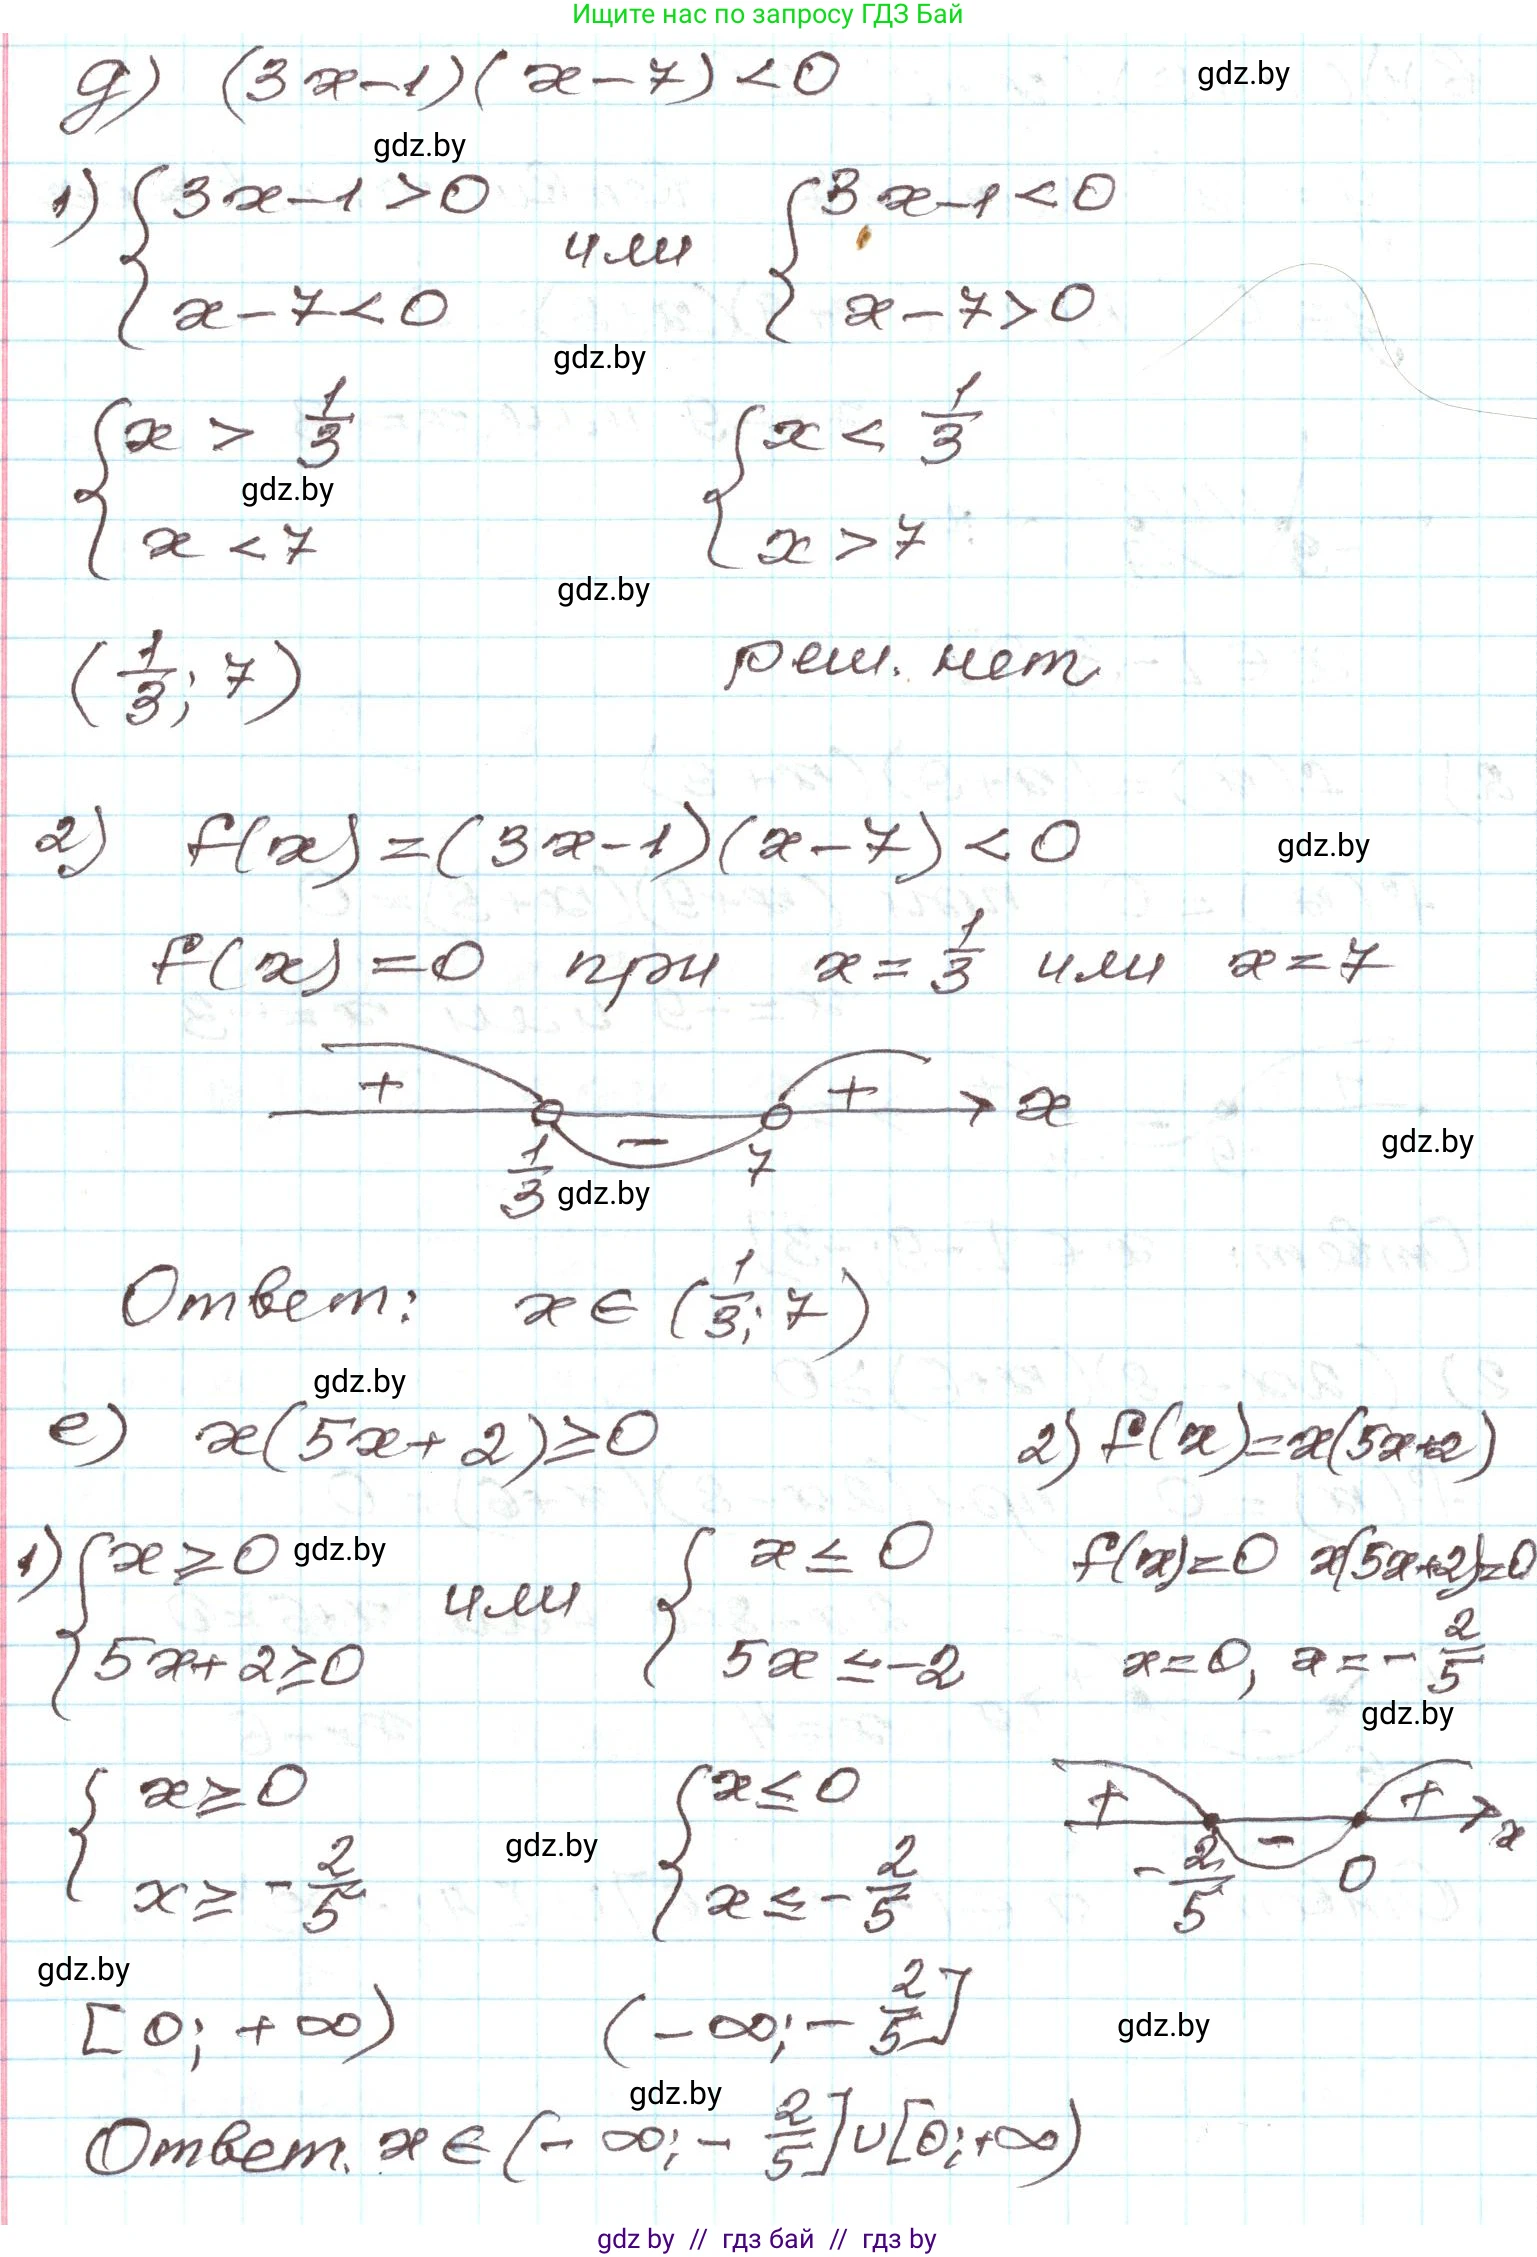 Ищите нас по запросу ГДЗ Бай
д) (3x-1)(x-7)<0
gdz.by
gdz.by
1) { 3x-1>0 или { 3x-1<0
x-7<0 x-7>0
gdz.by
{ x > 1/3 { x < 1/3
gdz.by
x<7 x>7
gdz.by
(1/3; 7) реш. нет
2) f(x)=(3x-1)(x-7)<0
gdz.by
f(x)=0 при x=1/3 или x=7
+ - + x
gdz.by
1/3 7
gdz.by
Ответ: x∈(1/3; 7)
gdz.by
е) x(5x+2)≥0 2) f(x)=x(5x+2)
1) { x≥0 gdz.by или { x≤0 f(x)=0 x(5x+2)=0
5x+2≥0 5x≤-2 x=0, x=-2/5
gdz.by
{ x≥0 { x≤0 + - + x
gdz.by
x≥-2/5 x≤-2/5 -2/5 0
gdz.by
[0; +∞) (-∞; -2/5]
gdz.by
gdz.by
Ответ. x∈(-∞; -2/5]∪[0;+∞)
gdz by // гдз бай // гдз by